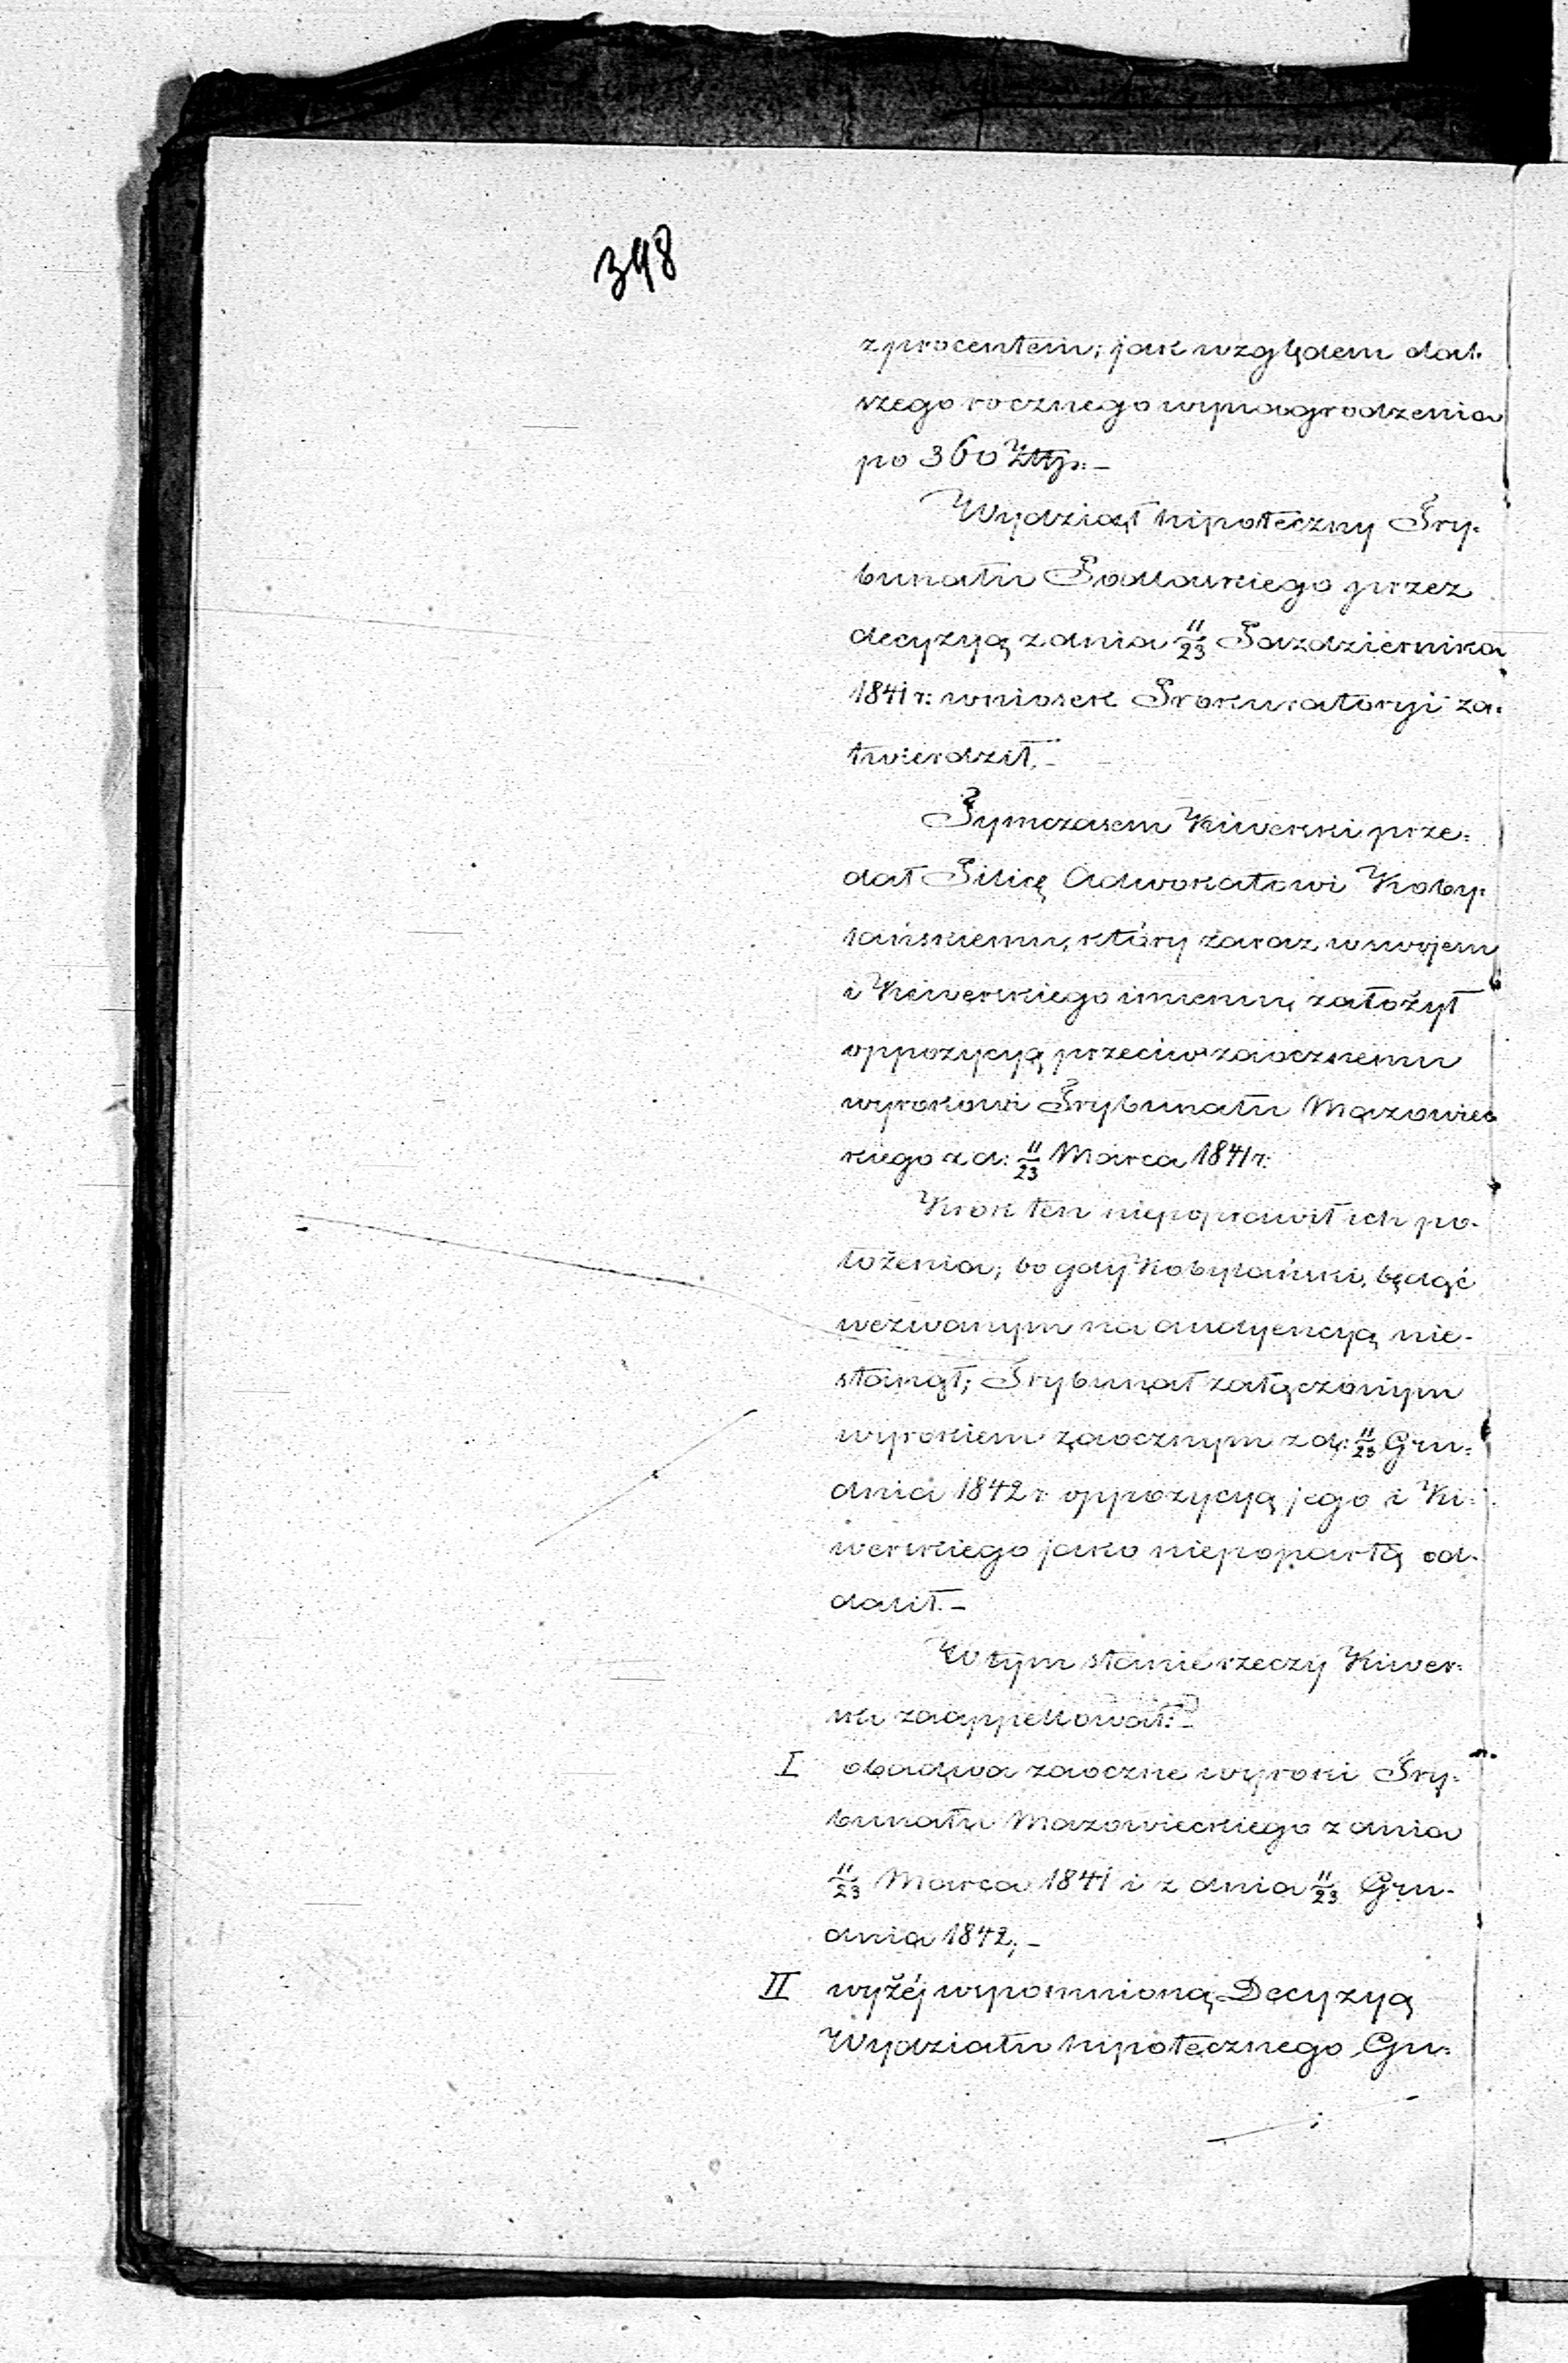 348
z procentem; jak względem dal-
szego rocznego wynagrodzenia
po 360 Złtp: –
Wydział hipoteczny Try-
bunału Podlaskiego przez
decyzyą z dnia 11/23 Października
1841 r: wniosek Prokuratoryi za-
twierdził. –
Tymczasem Kiwerski prze-
dał Pilicę Adwokatowi Koby-
łańskiemu, który zaraz w swojem
i Kiwerskiego imieniu założył
oppozycyą przeciw zaocznemu
wyrokowi Trybunału Mazowiec-
kiego z d: 11/23 Marca 1841 r:
Krok ten niepoprawił ich po-
łożenia; bo gdy Kobyłański, będąc
wezwanym na audyencyą nie-
stanął; Trybunał załączonym
wyrokiem zaocznym z d: 11/23 Gru-
dnia 1842 r oppozycyą jego i Ki-
werskiego jako niepopartą od-
dalił. –
W tym stanie rzeczy Kiwer-
ski zaappellował: –
I obadwa zaoczne wyroki Try-
bunału Mazowieckiego z dnia
11/23 Marca 1841 i z dnia 11/23 Gru-
dnia 1842, –
II wyżéj wspomnioną Decyzyą
Wydziału hipotecznego Gu-